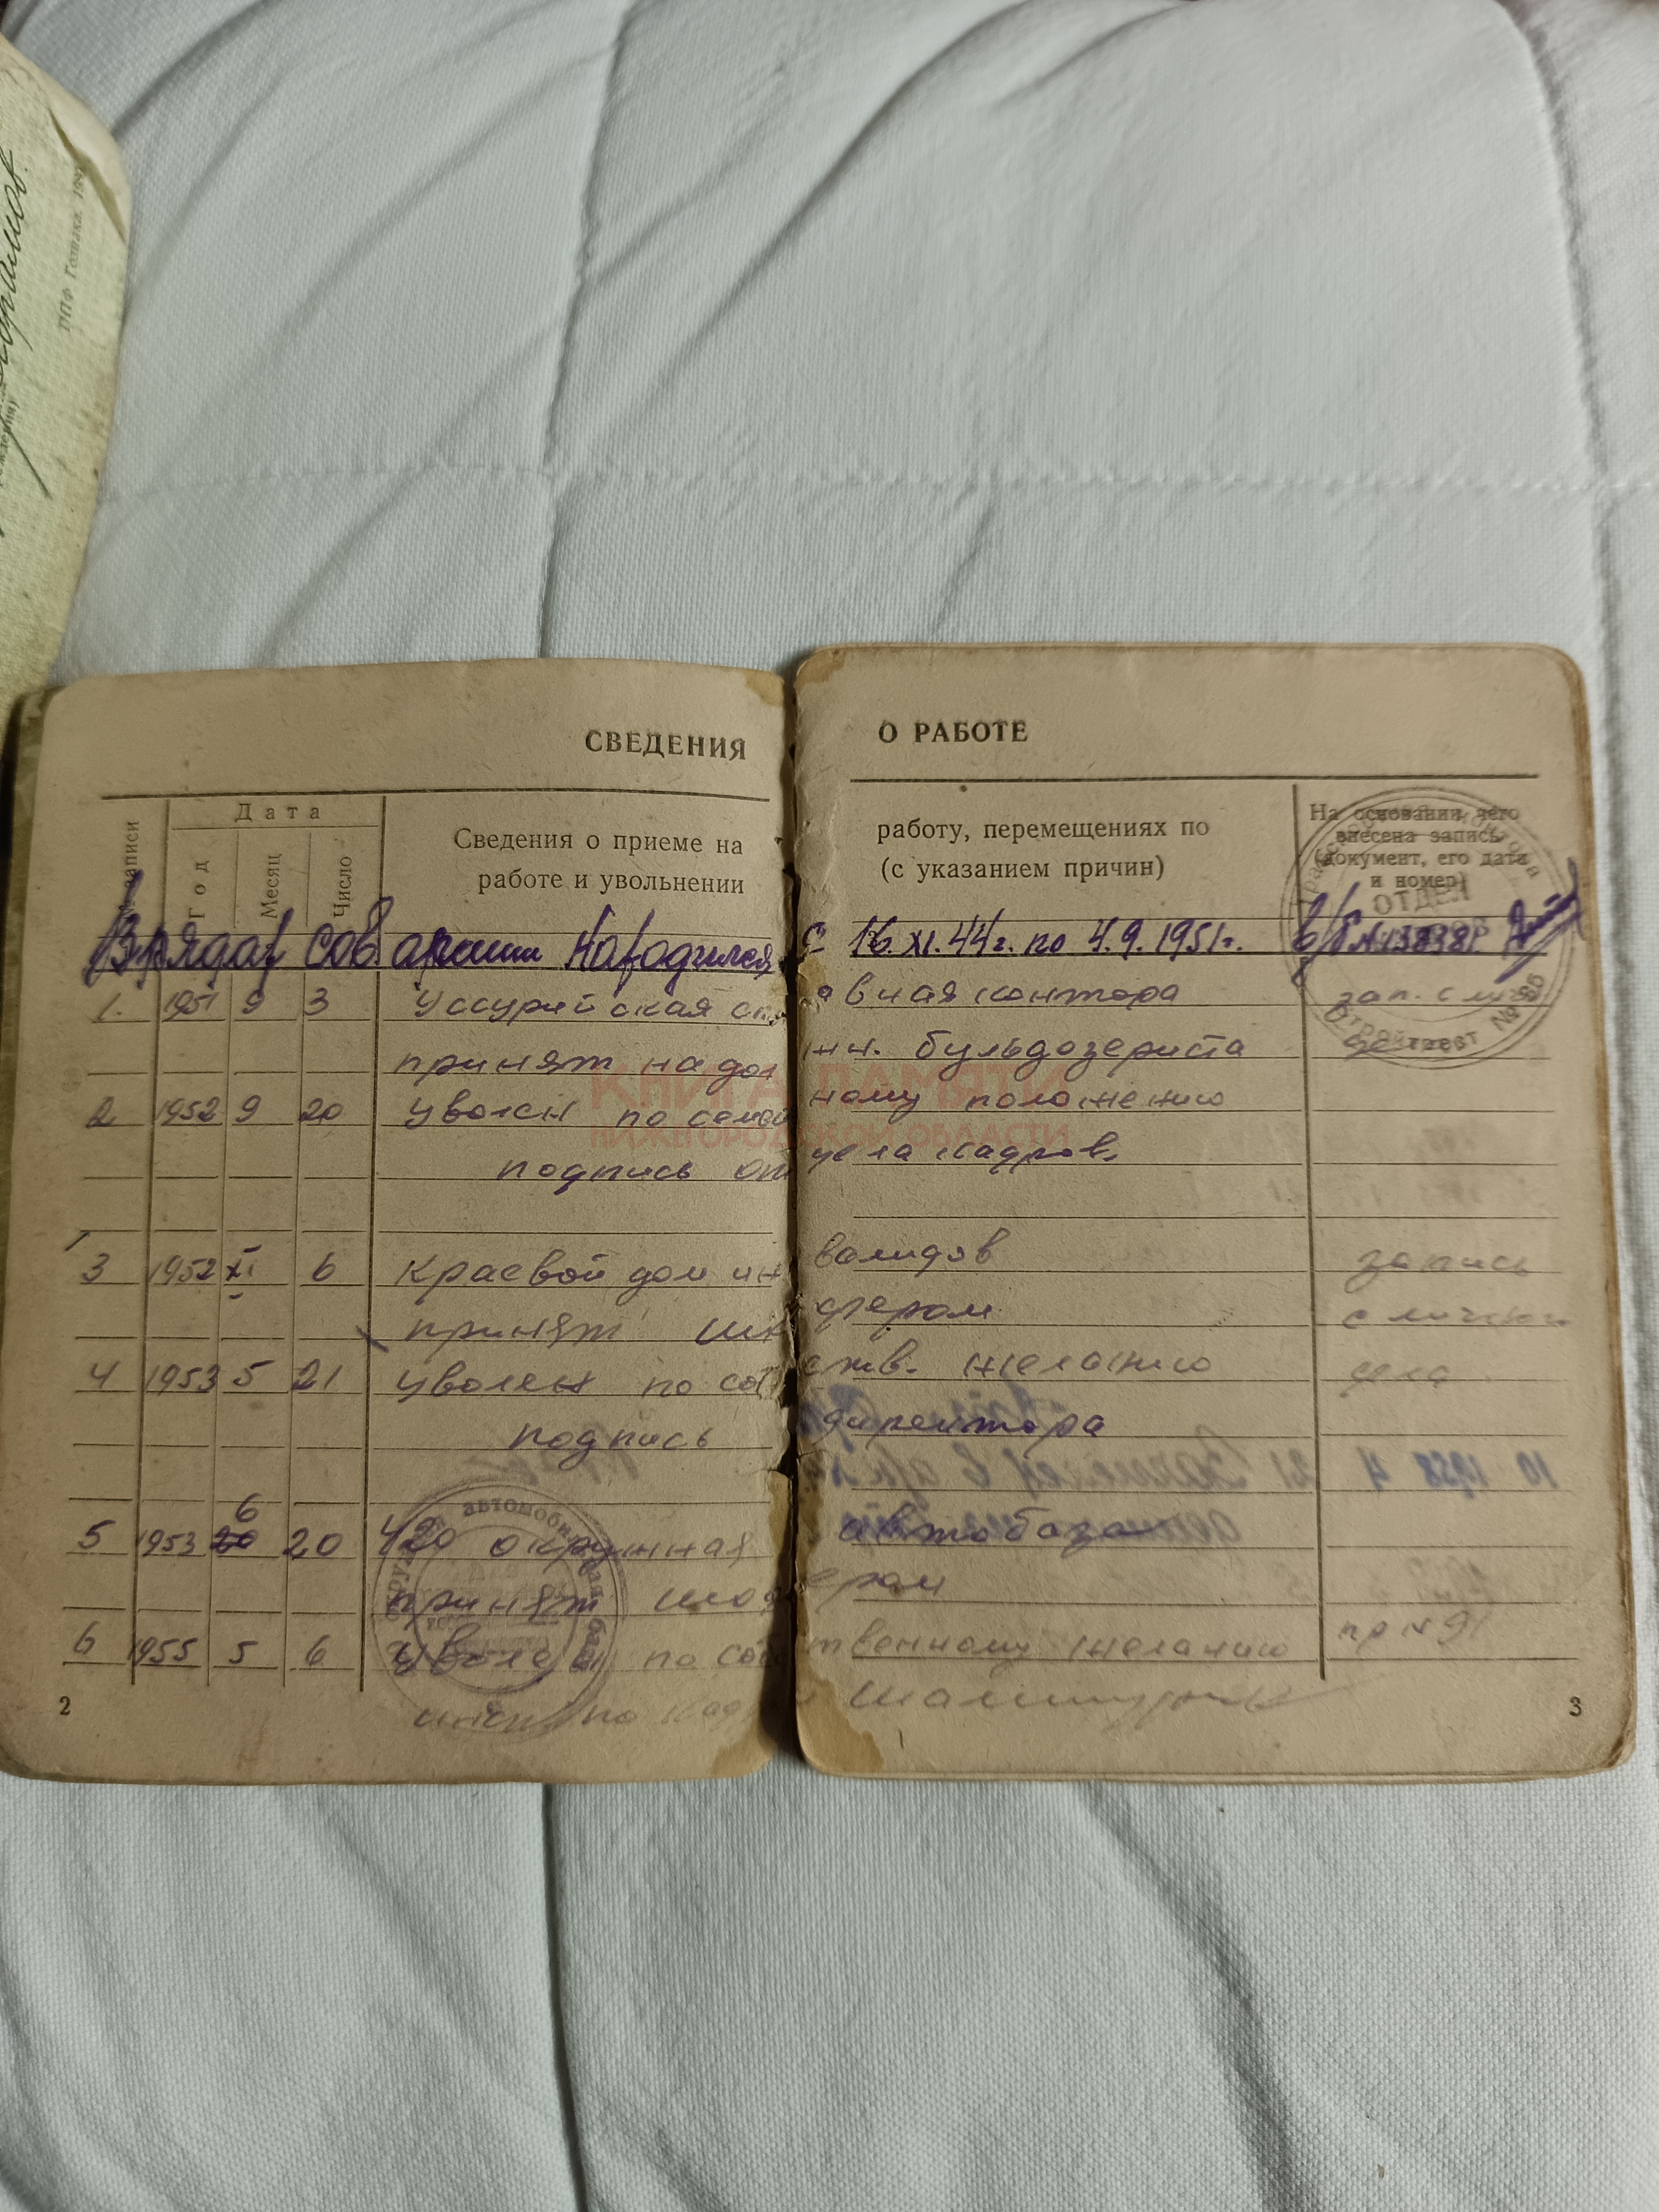 ТПФ Гознака. 19
СВЕДЕНИЯ О РАБОТЕ
записи
Дата
Год
Месяц
Число
Сведения о приеме на работу, перемещениях по
работе и увольнении (с указанием причин)
На основании чего
внесена запись
(документ, его дата
и номер)
ОТДЕЛ
В рядах Сов армии находился с 16.XI.44г. по 4.9.1951г. в/б
1. 1951 9 3 Уссурийская контора зап. с
принят на бульдозериста
2 1952 9 20 Уволен по семейному положению
подпись отдела кадров.
3 1952 XI 6 Краевой дом инвалидов запись
принят шофером с личного
4 1953 5 21 уволен по собств. желанию дела
подпись директора
6
5 1953 20 20 420 окружная автобаза
принят шофером
6 1955 5 6 Уволен по собственному желанию пр N 91
по кадр
автомобильная
Стройтрест №
КНИГА ПАМЯТИ
НИЖЕГОРОДСКОЙ ОБЛАСТИ
2
3